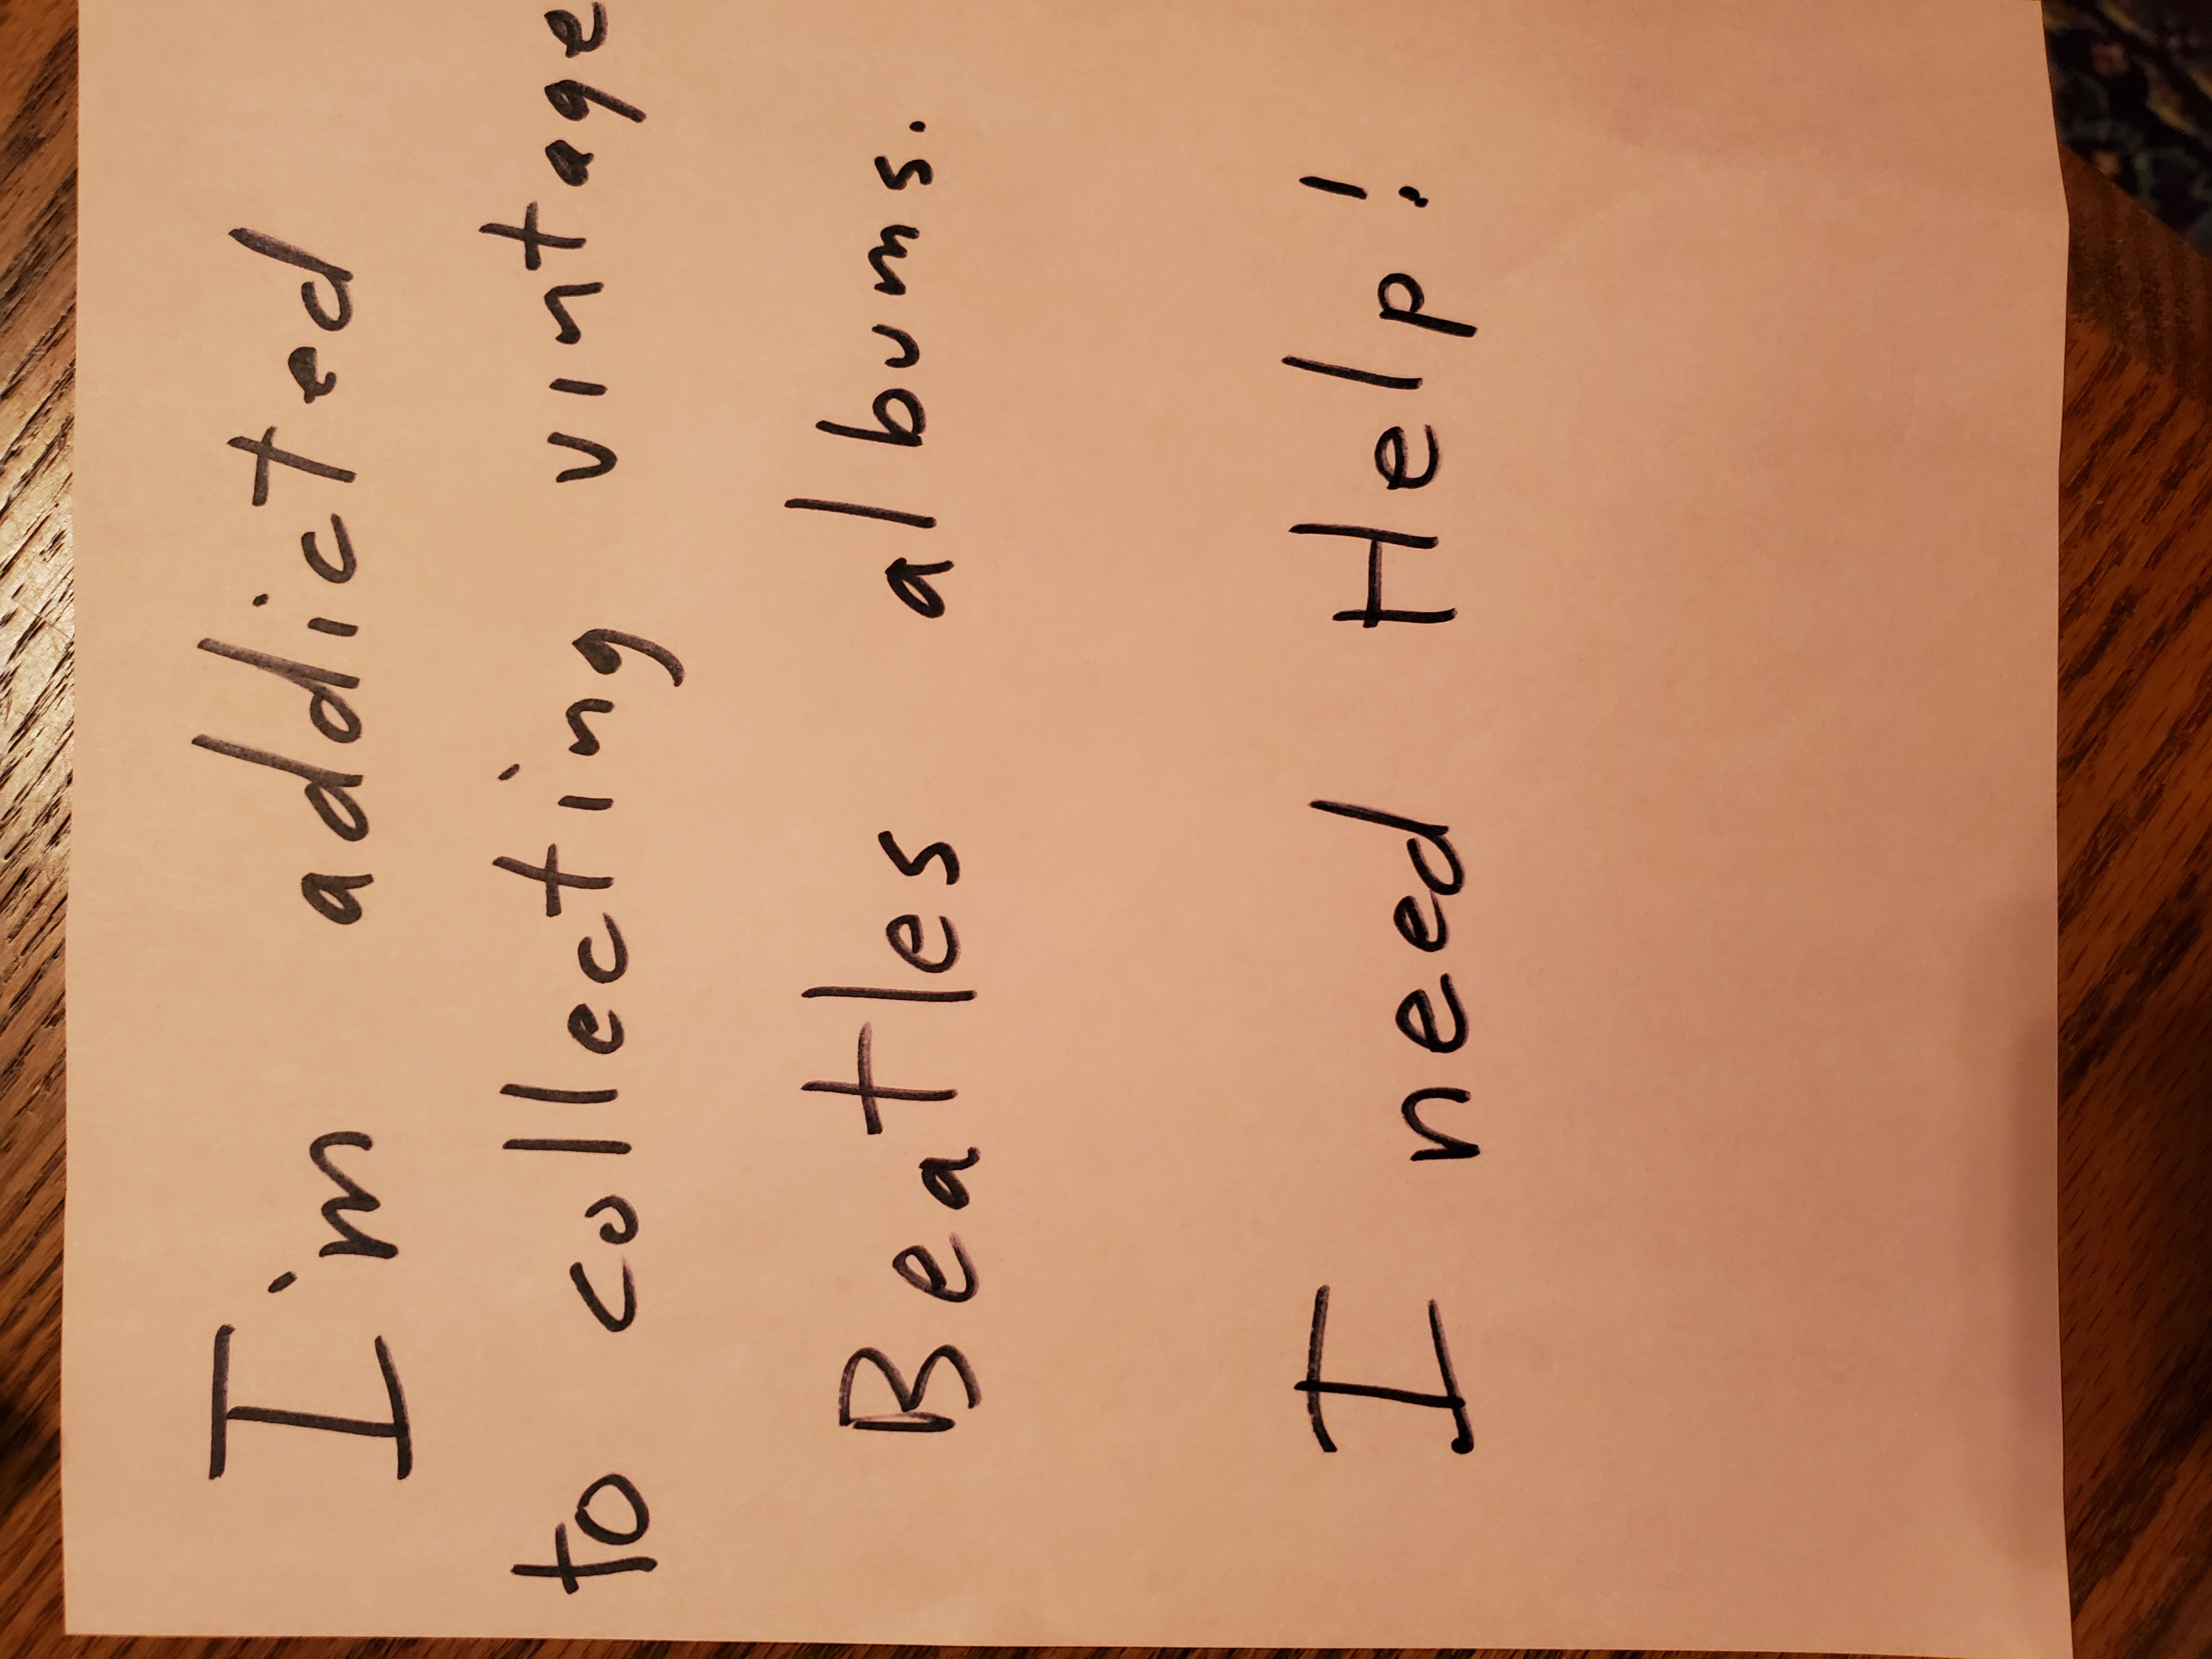 I'm addicted
to collecting vintage
Beatles albums.
I need Help!